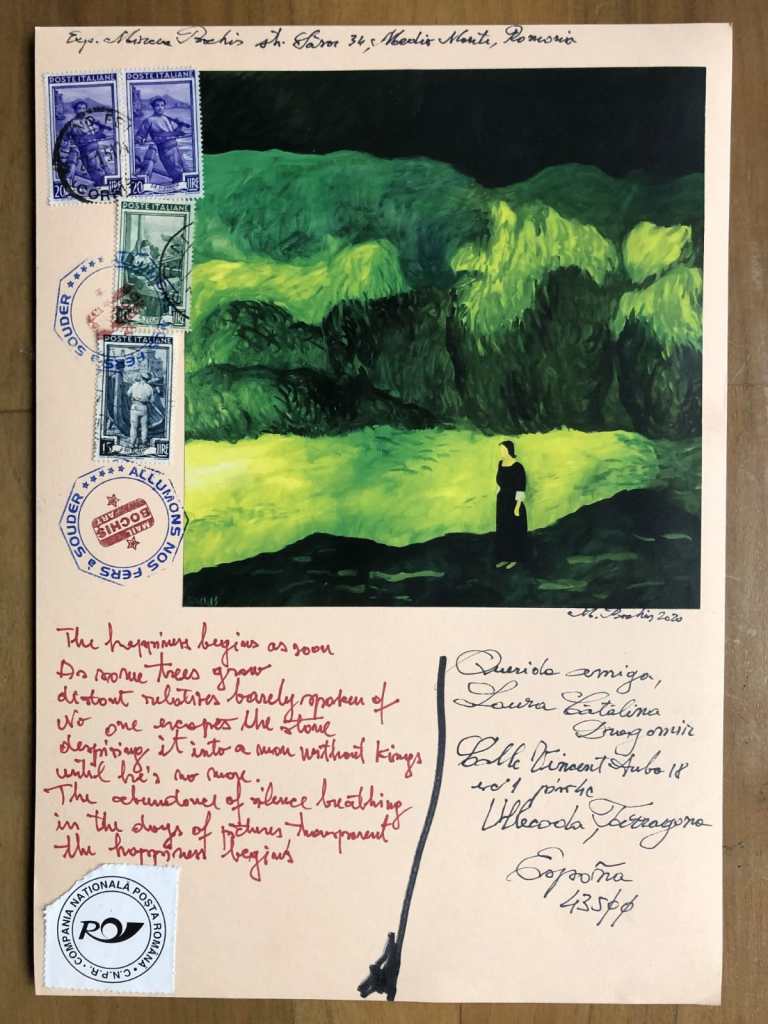 Exp. Mircea Bochis str. Sasar 34, Medio Monti, Romania
POSTE ITALIANE
POSTE ITALIANE
20 LIRE
20 LIRE
POSTE ITALIANE
POSTE ITALIANE
15 LIRE
FERS à SOUDER
ALLUMONS NOS FERS à SOUDER
MAIL ART
BOCHIS
M. Bochis 2020
The happiness begins as soon
As some trees grow
distant relatives barely spoken of
No one escapes the stone
despising it into a man without Kings
until he's no more.
The abundance of silence breathing
in the days of pictures transparent
the happiness begins
Querida amiga,
Laura Catalina
Dragomir
Calle Vincent Aubo 18
esc 1
Ulldecona, Tarragona
España
43500
COMPANIA NATIONALA POSTA ROMANA
C.N.P.R.